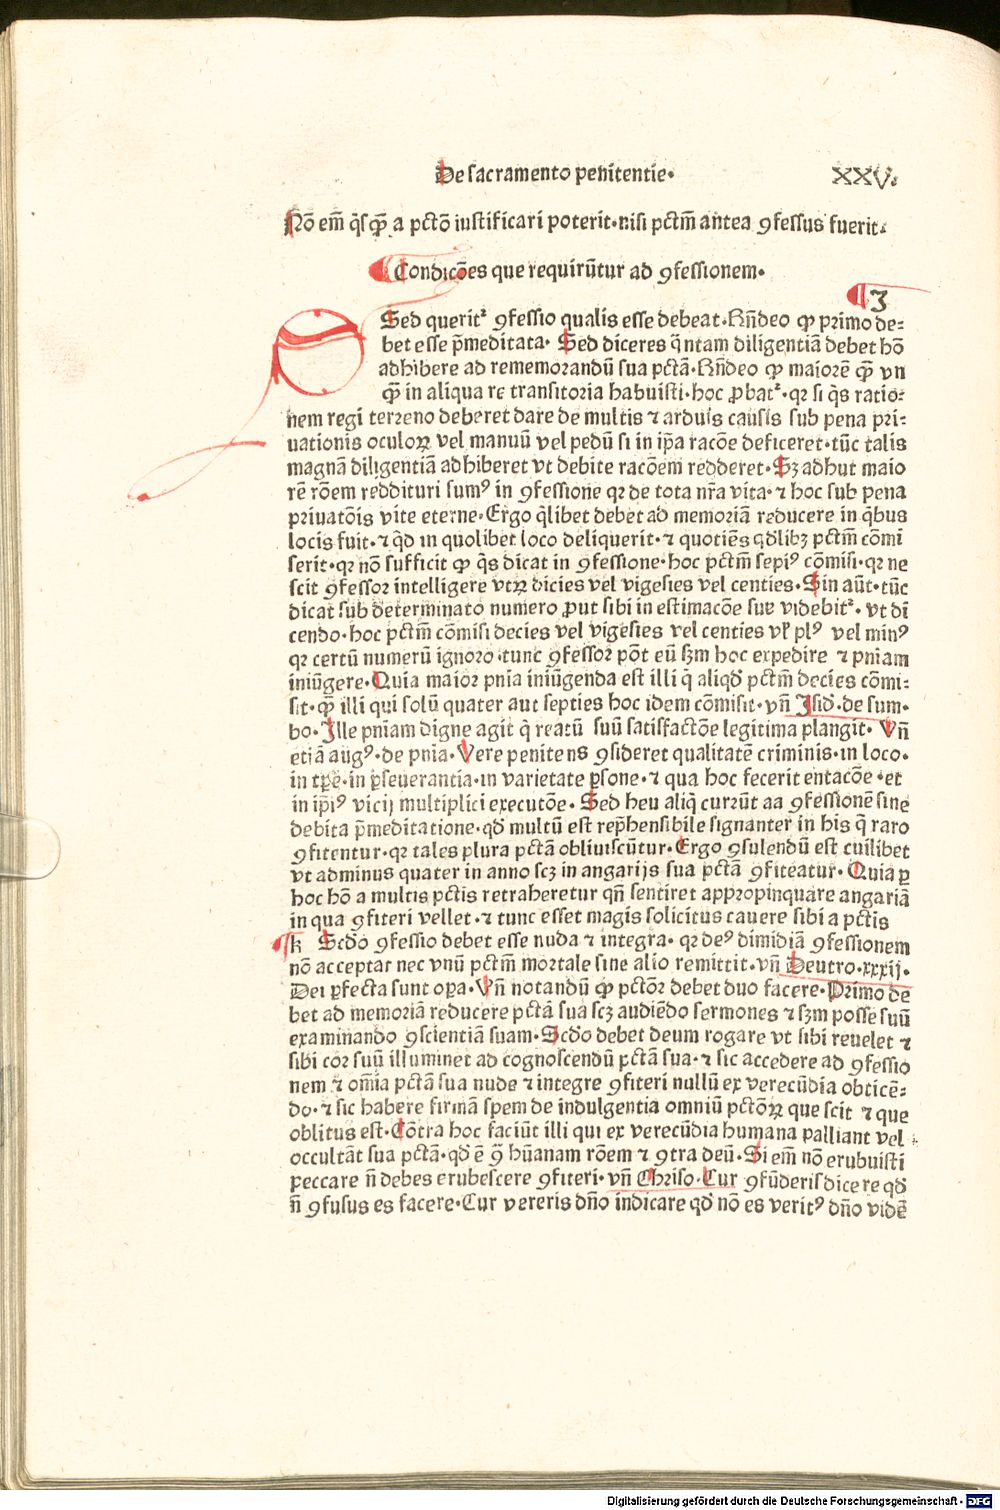 De sacramento penitentie.
XXV.
Nō em̄ q̄sꝙ̄ a pctō iustificari poterit·nisi pctm̄ antea ꝯfessus fuerit.
Condicōes que requirūtur ad ꝯfessionem.
J
Sed querit᷑ ꝯfessio qualis esse debeat·Rn̄deo ꝙ primo de-
bet esse p̄meditata· Sed diceres q̄ntam diligentiā debet hō
adhibere ad rememorandū sua pctā·Rn̄deo ꝙ maiorē ꝙ̄ vn
ꝙ̄ in aliqua re transitoria habuisti·hoc ꝓbat᷑·qꝛ si q̄s ratio-
nem regi terreno deberet dare de multis ⁊ arduis causis sub pena pri-
uationis oculoꝝ vel manuū vel pedū si in ip̄a racōe deficeret·tūc talis
magnā diligentiā adhiberet vt debite racōem redderet·Sꝫ adhuc maio
rē rōem reddituri sumꝰ in ꝯfessione qꝛ de tota nr̄a vita·⁊ hoc sub pena
priuatōis vite eterne·Ergo q̄libet debet ad memoriā reducere in q̄bus
locis fuit·⁊ q̄d in quolibet loco deliquerit·⁊ quotiēs qd̄libꝫ pctm̄ cōmi
serit·qꝛ nō sufficit ꝙ q̄s dicat in ꝯfessione·hoc pctm̄ sepiꝰ cōmisi·qꝛ ne
scit ꝯfessor intelligere vtꝝ dicies vel vigesies vel centies·Sin aūt·tūc
dicat sub determinato numero ꝓut sibi in estimacōe sue videbit᷑·vt di
cendo·hoc pctm̄ cōmisi decies vel vigesies vel centies vl̓ plꝰ vel minꝰ
qꝛ certū numerū ignoro·tunc ꝯfessor pōt eū sꝫm hoc expedire ⁊ pniam
iniūgere·Quia maior pnia iniūgenda est illi q̄ aliqd̄ pctm̄ decies cōmi-
sit·ꝙ̄ illi qui solū quater aut septies hoc idem cōmisit·vn̄ Isid̄·de sum·
bo·Ille pniam digne agit q̄ reatū suū satisfactōe legitima plangit· Vn̄
etiā augꝰ·de pnia·Vere penitens ꝯsideret qualitatē criminis·in loco·
in tꝑe·in ꝑseuerantia·in varietate ꝑsone·⁊ qua hoc fecerit entacōe·et
in ip̄iꝰ vicij multiplici executōe· Sed heu aliq̄ currūt aa ꝯfessionē sine
debita p̄meditatione·qd̄ multū est rep̄hensibile signanter in his q̄ raro
ꝯfitentur·qꝛ tales plura pctā obliuiscūtur·Ergo ꝯsulendū est cuilibet
vt adminus quater in anno scꝫ in angarijs sua pctā ꝯfiteatur·Quia ꝑ
hoc hō a multis pctis retraheretur qn̄ sentiret appropinquare angariā
in qua ꝯfiteri vellet·⁊ tunc esset magis solicitus cauere sibi a pctis
k Scdō ꝯfessio debet esse nuda ⁊ integra·qꝛ deꝰ dimidiā ꝯfessionem
nō acceptat nec vnū pctm̄ mortale sine alio remittit·vn̄ Deutro·xxxij·
Dei ꝑfecta sunt oꝑa·Vn̄ notandū ꝙ pctōr debet duo facere·Primo de
bet ad memoriā reducere pctā sua scꝫ audiēdo sermones ⁊ sꝫm posse suū
examinando ꝯscientiā suam·Scdō debet deum rogare vt sibi reuelet ⁊
sibi cor suū illuminet ad cognoscendū pctā sua·⁊ sic accedere ad ꝯfessio
nem ⁊ om̄ia pctā sua nude ⁊ integre ꝯfiteri nullū ex verecūdia obticē-
do·⁊ sic habere firmā spem de indulgentia omniū pctōꝝ que scit ⁊ que
oblitus est·Cōtra hoc faciūt illi qui ex verecūdia humana palliant vel
occultāt sua pctā·qd̄ ē ꝯ̄ hūanam rōem ⁊ ꝯtra deū·Si em̄ nō erubuisti
peccare n̄ debes erubescere ꝯfiteri·vn̄ Chriso·Cur ꝯfūderis dicere qd̄
n̄ ꝯfusus es facere·Cur vereris dn̄o indicare qd̄ nō es veritꝰ dn̄o vidē
Digitalisierung gefördert durch die Deutsche Forschungsgemeinschaft - DFG